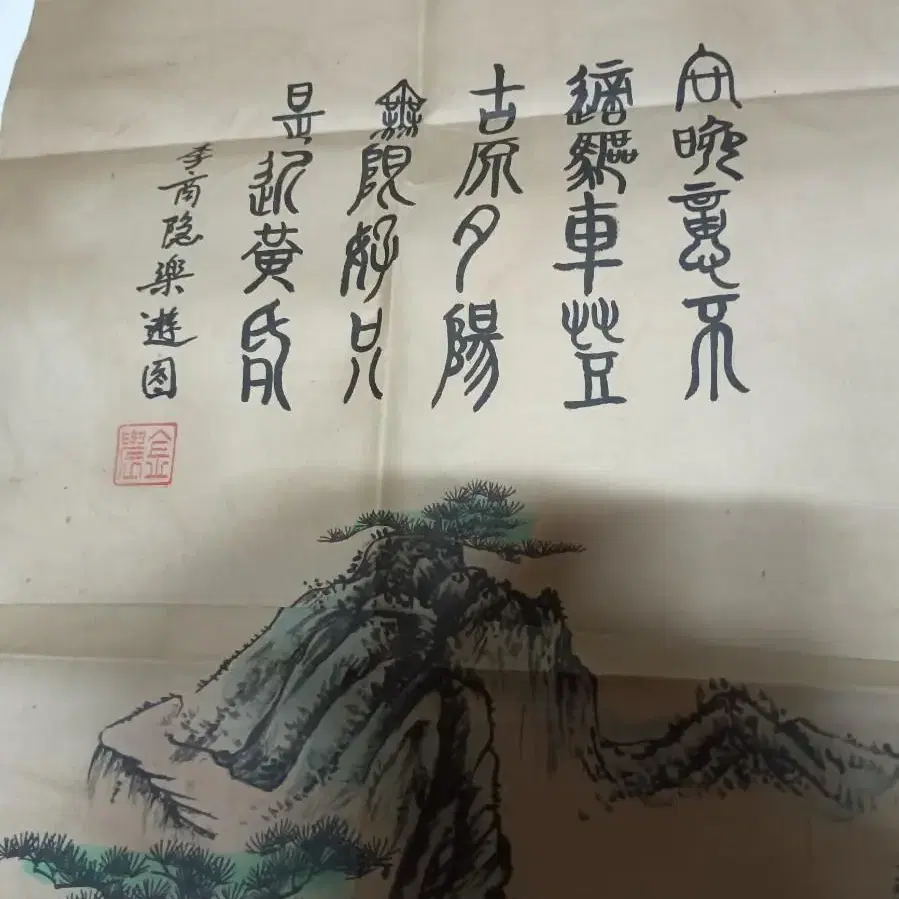 向晚意不
適驅車登
古原夕陽
無限好只
是近黃昏
李商隐樂遊图